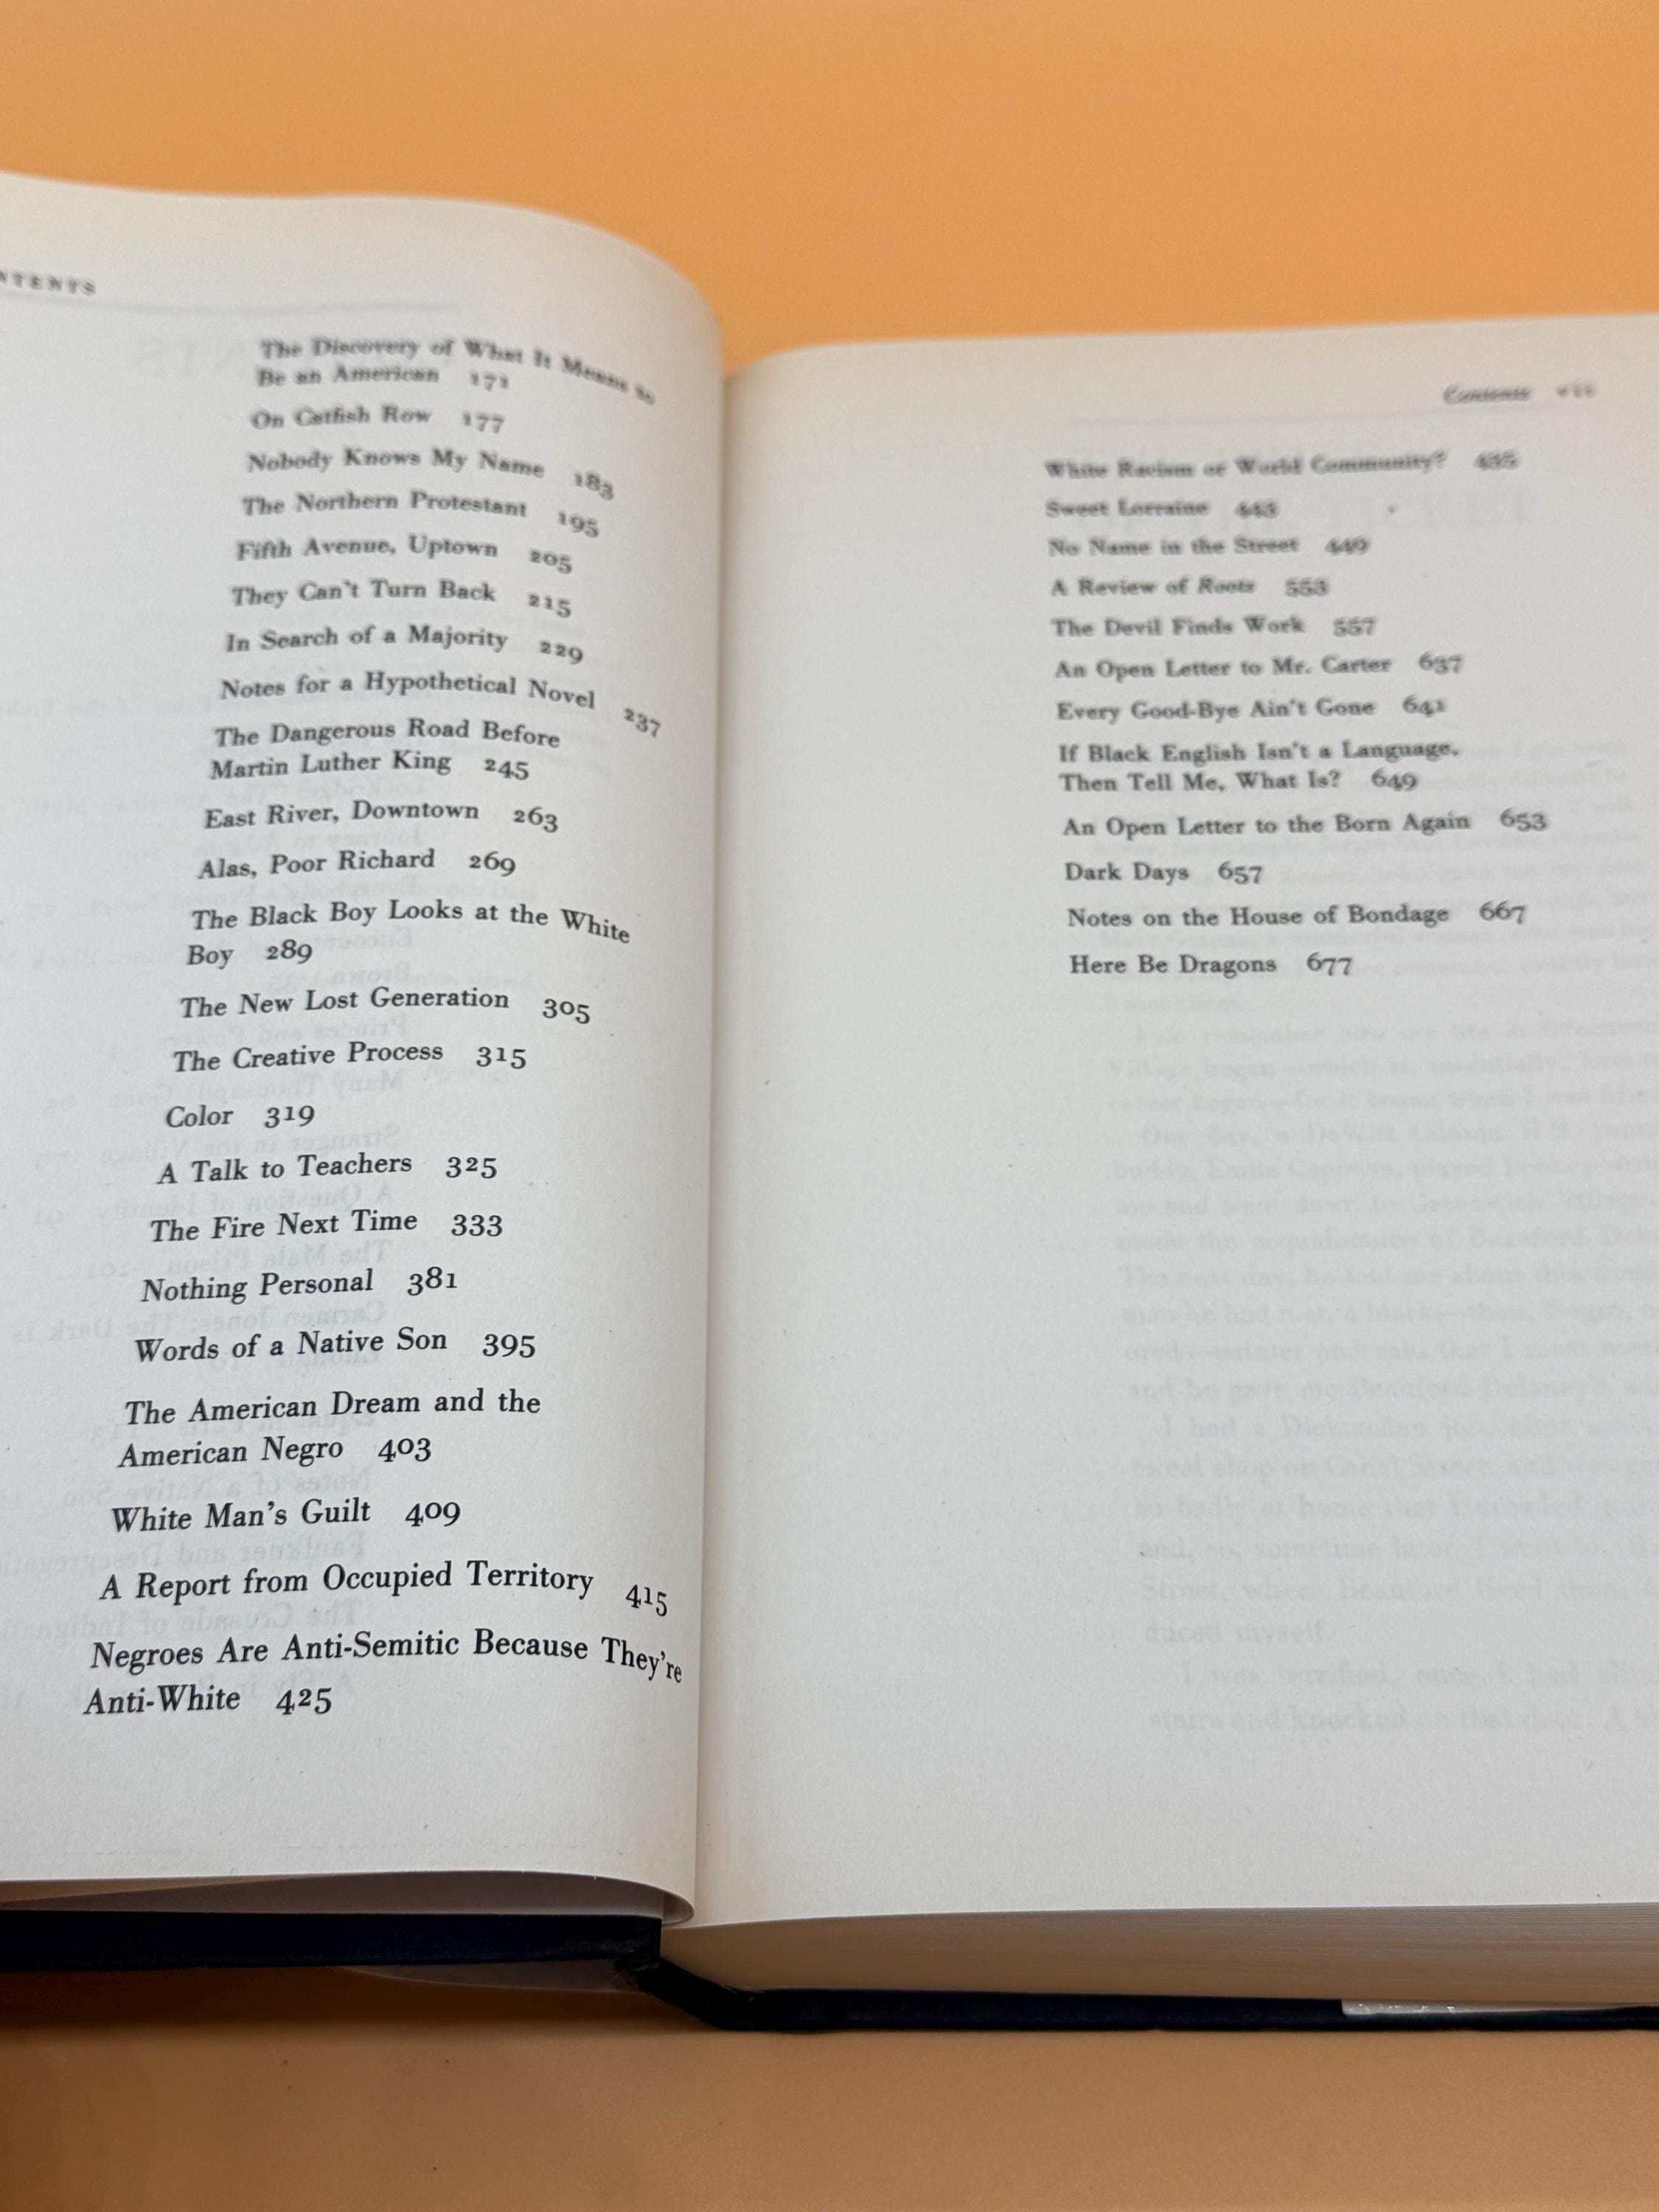 NTENTS
The Discovery of What It Means to
Be an American 171
On Catfish Row 177
Nobody Knows My Name 183
The Northern Protestant 195
Fifth Avenue, Uptown 205
They Can't Turn Back 215
In Search of a Majority 229
Notes for a Hypothetical Novel 237
The Dangerous Road Before
Martin Luther King 245
East River, Downtown 263
Alas, Poor Richard 269
The Black Boy Looks at the White
Boy 289
The New Lost Generation 305
The Creative Process 315
Color 319
A Talk to Teachers 325
The Fire Next Time 333
Nothing Personal 381
Words of a Native Son 395
The American Dream and the
American Negro 403
White Man's Guilt 409
A Report from Occupied Territory 415
Negroes Are Anti-Semitic Because They're
Anti-White 425
Contents
White Racism or World Community? 435
Sweet Lorraine 443
No Name in the Street 449
A Review of Roots 553
The Devil Finds Work 557
An Open Letter to Mr. Carter 637
Every Good-Bye Ain't Gone 641
If Black English Isn't a Language,
Then Tell Me, What Is? 649
An Open Letter to the Born Again 653
Dark Days 657
Notes on the House of Bondage 667
Here Be Dragons 677